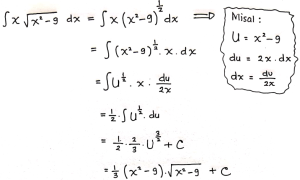 ∫ x √(x²-9) dx = ∫ x (x²-9)^(1/2) dx ⟹
= ∫ (x²-9)^(1/2) . x . dx
= ∫ U^(1/2) . x . du/2x
= 1/2 . ∫ U^(1/2) . du
= 1/2 . 2/3 . U^(3/2) + C
= 1/3 (x²-9) . √(x²-9) + C
Misal :
U = x²-9
du = 2x . dx
dx = du/2x